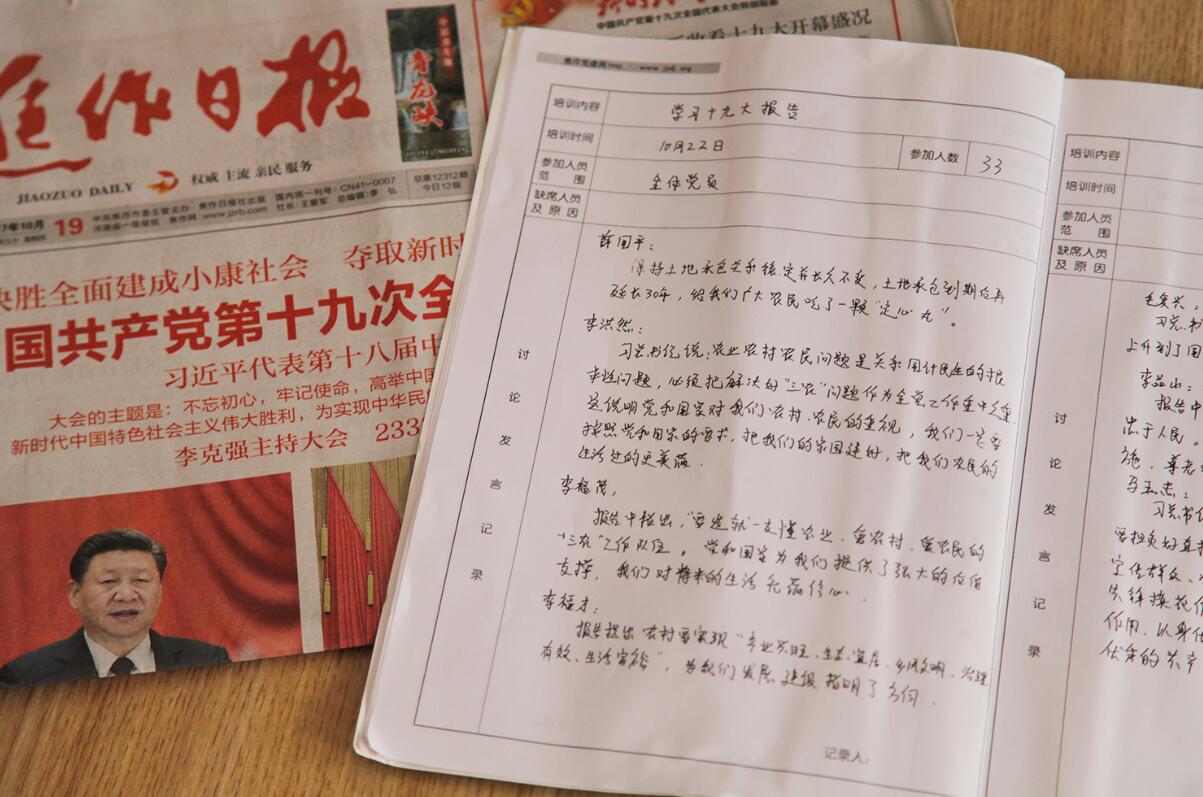 焦作日报
中国养生地
青龙峡
JIAOZUO DAILY
权威 主流 亲民 服务
7年10月
19
中共焦作市委主管主办 焦作日报社出版 国内统一刊号：CN41-0007
河南省一级报纸 焦作网：www.jzrb.com 社长：王爱军 总编辑：李 弘
总第12312期
今日12版
决胜全面建成小康社会 夺取新时
国共产党第十九次全
习近平代表第十八届中
大会的主题是：不忘初心，牢记使命，高举中国
新时代中国特色社会主义伟大胜利，为实现中华民
李克强主持大会 233
中国共产党第十九次全国代表大会特别报道
收看十九大开幕盛况
焦作党建网http://www.jzdj.org
培训内容
学习十九大报告
培训时间
10月22日
参加人数
33
参加人员
范 围
全体党员
缺席人员
及 原 因
讨论发言记录
薛国平：
保持土地承包关系稳定并长久不变，土地承包到期后再
延长30年，给我们广大农民吃了一颗"定心丸"。
李洪然：
习总书记说：农业农村农民问题是关系国计民生的根
本性问题，必须把解决好"三农"问题作为全党工作重中之重
这说明党和国家对我们农村、农民的重视，我们一定要
按照党和国家的要求，把我们的家园建好，把我们农民的
生活过的更美满.
李福茂：
报告中指出，"要造就一支懂农业、爱农村、爱农民的
"三农"工作队伍。党和国家为我们提供了强大的后值
支撑，我们对将来的生活充满信心.
李福才：
报告提出农村要实现"产业兴旺、生态宜居、乡风文明、治理
有效、生活富裕"，为我们发展建设指明了方向.
记录人：
培训内容
培训时间
参加人员
范 围
缺席人员
及 原 因
讨论发言记录
毛复兴：
习总书
上升到了国
报告中
忠于人民。
施，尊老
习总书记
作用，以身作